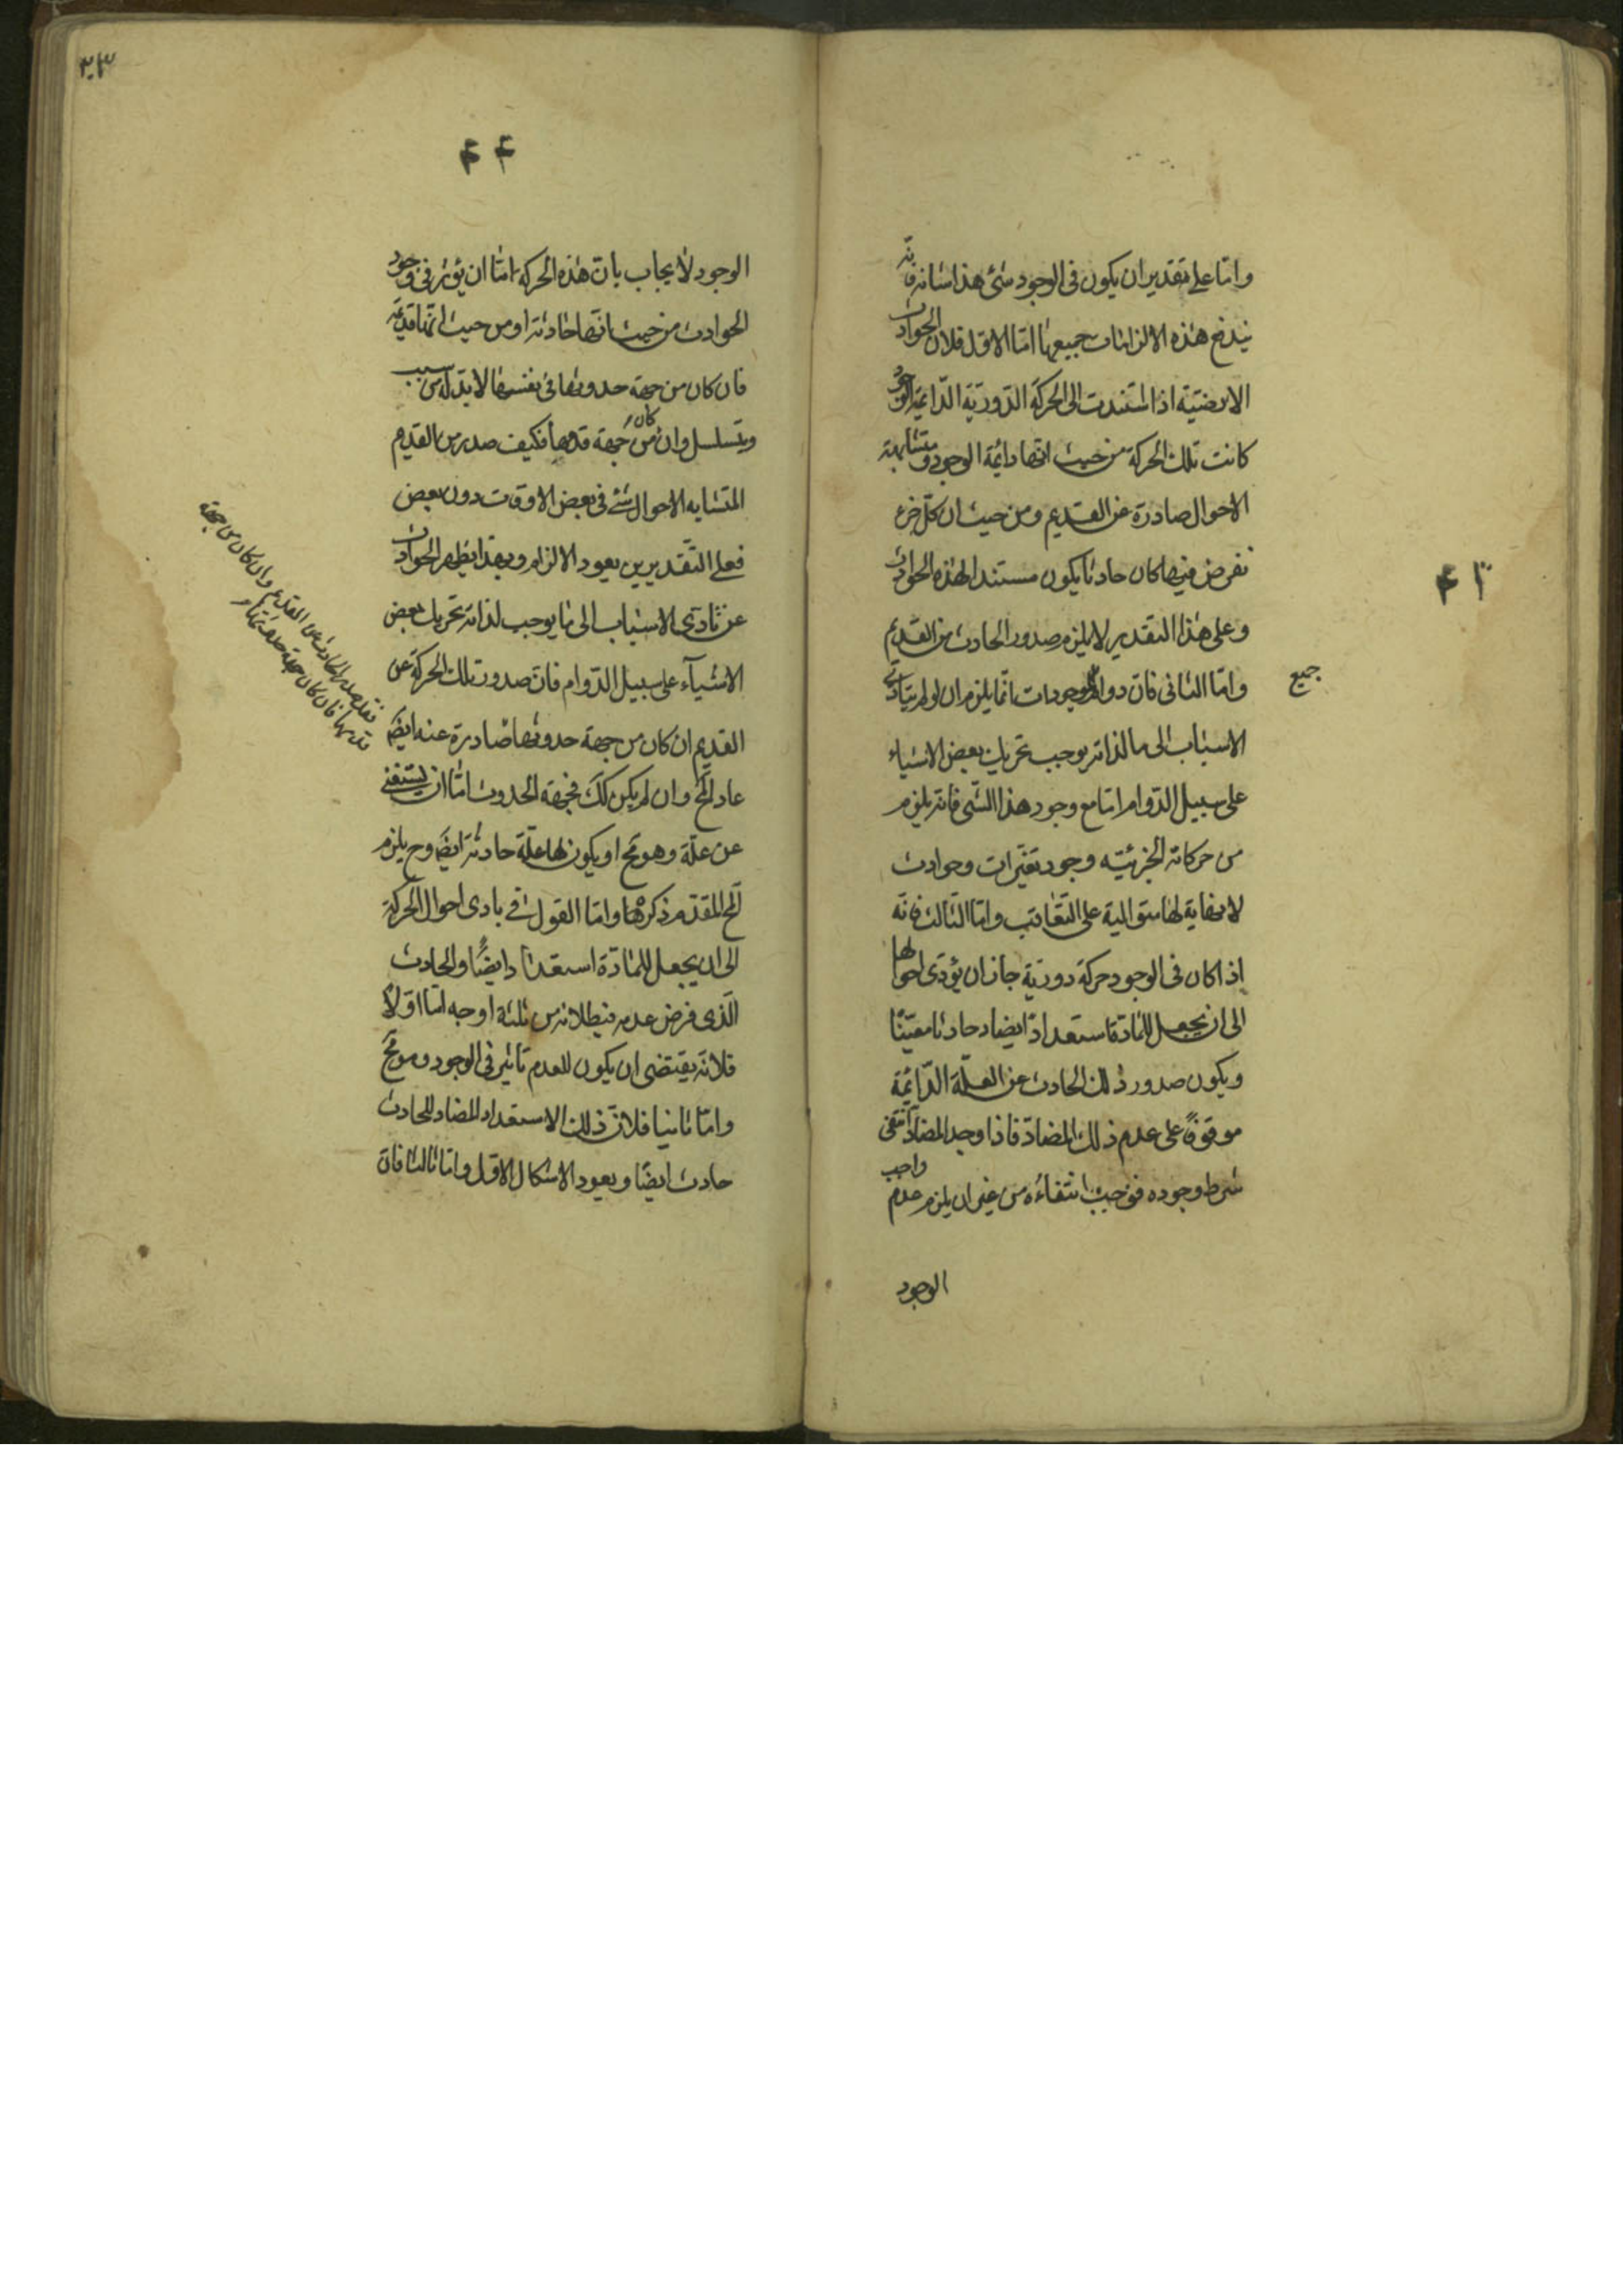 واما على تقدير ان يكون فى الوجود شئ هذا شانه فانه
يندفع هذه الالزامات جميعها اما الاول فلان الحوادث
الارضية اذا استندت الى الحركة الدورية الدائمة الوجود
كانت تلك الحركة من حيث انها دائمة الوجود ومتشابهة
الاحوال صادرة عن القديم ومن حيث ان كل جزء
نفرض فيها كان حادثا يكون مستندا لهذه الحوادث
وعلى هذا التقدير لا يلزم صدور الحادث من القديم
واما الثانى فان دوام الموجودات انما يلزم ان لو لم يتادى
جميع
الاسباب الى ما لذاته يوجب تحريك بعض الاشياء
على سبيل الدوام اما مع وجود هذا الشى فانه يلزم
من حركاته الجزئيته وجود تغيرات وحوادث
لا نهاية لها متوالية على التعاقب واما الثالث فانه
اذا كان فى الوجود حركة دورية جاز ان يؤدى احوالها
الى ان يجعل للمادة استعدادا يضاد حادثا معينا
ويكون صدور ذلك الحادث عن العلة الدائمة
موقوفا على عدم ذلك المضاد فاذا وجد المضاد انتفى
شرط وجوده فوجب انتفاءه من غير ان يلزم عدم واجب
الوجود
٤٣
٤٤
الوجود لا يجاب بان هذه الحركة اما ان يؤثر فى وجود
الحوادث من حيث انها حادثة او من حيث انها قديمة
فان كان من جهة حدوثها فى نفسها لا بد له من سبب
ويتسلسل وان كان من جهة قدمها فكيف صدر من القديم
المتشابه الاحوال شئ فى بعض الاوقات دون بعض
فعلى التقديرين يعود الالزام وبهذا يظهر الجواب
عن تادى الاسباب الى ما يوجب لذاته تحريك بعض
الاشياء على سبيل الدوام فان صدور تلك الحركة عن
القديم ان كان من جهة حدوثها صادرة عنه ايضا
عاد المح وان لم يكن كك فجهة الحدوث اما ان يستغنى
عن علة وهو مح او يكون لها علة حادثة ايضا وح يلزم
المح المقدم ذكرها واما القول فى بادى احوال الحركة
الى ان يجعل للمادة استعدادا يضا والحادث
الذى فرض عدمه فبطلانه من ثلثة اوجه اما اولا
فلانه يقتضى ان يكون للعدم تاثير فى الوجود وهو مح
واما ثانيا فلان ذلك الاستعداد المضاد للحادث
حادث ايضا ويعود الاشكال الاول واما ثالثا فان
فقد صدر الحادث عن القديم وان كان من جهة
قدمها فان كان جهة حدوثها